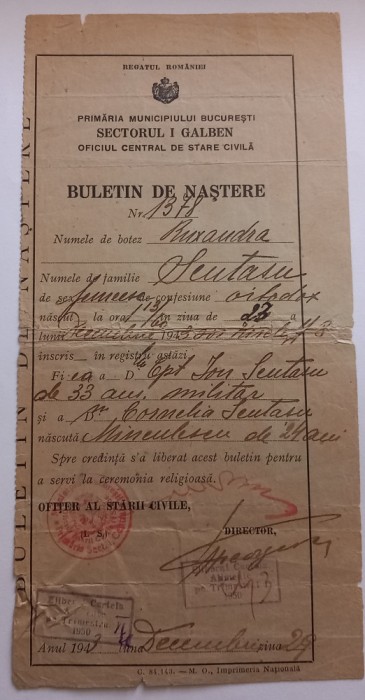 REGATUL ROMÂNIEI
PRIMĂRIA MUNICIPIULUI BUCUREȘTI
SECTORUL I GALBEN
OFICIUL CENTRAL DE STARE CIVILĂ
BULETIN DE NAȘTERE
BULETIN DE NAȘTERE
Nr. 1378
Numele de botez Ruxandra
Numele de familie Scutasu
de sex femeesc de confesiune ortodox
născut la ora în ziua de 23 a
lunei Decembrie
inscris în registru astăzi
Fiica a D Cpt Ion Scutasu
de 33 ani, militar
și a Cornelia Scutasu
născută Minculescu de 24 ani
Spre credință s'a liberat acest buletin pentru
a servi la ceremonia religioasă.
OFIȚER AL STĂRII CIVILE,
(L. S.)
DIRECTOR,
Anul 1943 luna Decembrie ziua 29
C. 84.143. — M. O., Imprimeria Națională